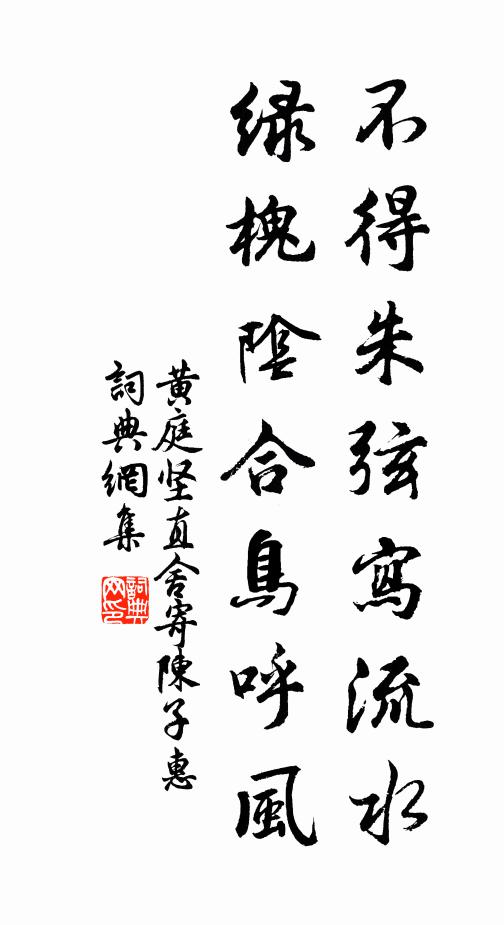 不得朱弦寫流水
綠槐陰合鳥呼風
黃庭堅直舍寄陳子惠
詞典網集
詞典網印